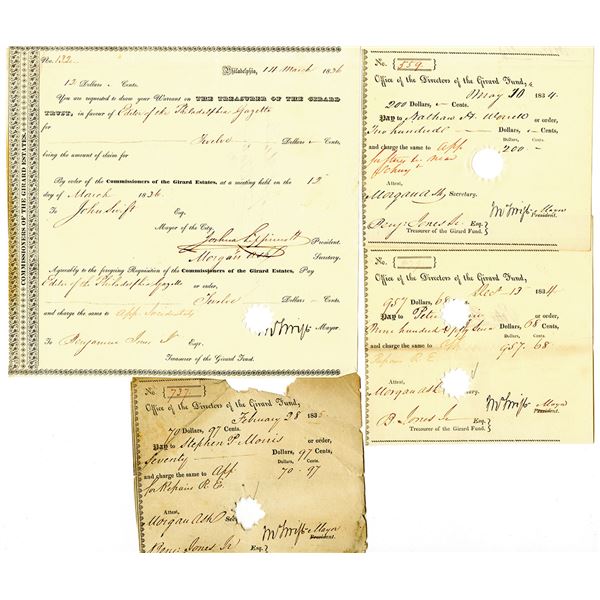 COMMISSIONERS OF THE GIRARD ESTATES.
No. 132
Philadelphia, 14 March 1836
12 Dollars Cents.
You are requested to draw your Warrant on THE TREASURER OF THE GIRARD
TRUST, in favour of Editor of the Philadelphia Gazette
Twelve Dollars Cents,
being the amount of claim for
By order of the Commissioners of the Girard Estates, at a meeting held on the 12
day of March 1836.
To John Swift Esq.
Mayor of the City.
Joshua Lippincott President.
Morgan Ash Secretary.
Agreeably to the foregoing Requisition of the Commissioners of the Girard Estates, Pay
Editor of the Philadelphia Gazette or order,
Twelve Dollars Cents,
and charge the same to App
Jno Swift Mayor.
To Benjamin Jones Jr Esqr.
Treasurer of the Girard Fund.
No. 559
Office of the Directors of the Girard Fund,
May 10 1834.
200 Dollars, Cents.
Pay to Nathan H. or order,
Two hundred Dollars, Cents,
and charge the same to App
Dollars, Cents.
200 -
Attest,
Morgan Ash, Secretary.
Jno Swift Mayor
President.
Benj. Jones Jr. Esq.
Treasurer of the Girard Fund.
No.
Office of the Directors of the Girard Fund,
Dec 13 1834
957 Dollars, 68 Cents.
Pay to Peter or order,
Nine hundred & fifty seven Dollars, 68 Cents,
and charge the same to App
Dollars, Cents.
957. 68
Repairs R. E.
Attest,
Morgan Ash Secretary.
Jno Swift Mayor
President.
B Jones Jr Esq.
Treasurer of the Girard Fund.
No. 737
Office of the Directors of the Girard Fund,
February 28 1835
70 Dollars, 97 Cents.
Pay to Stephen P. Morris or order,
Seventy Dollars, 97 Cents,
and charge the same to App
Dollars, Cents.
70 . 97
for Repairs R. E.
Attest,
Morgan Ash
Jno Swift Mayor
President.
Benj. Jones Jr Esq.